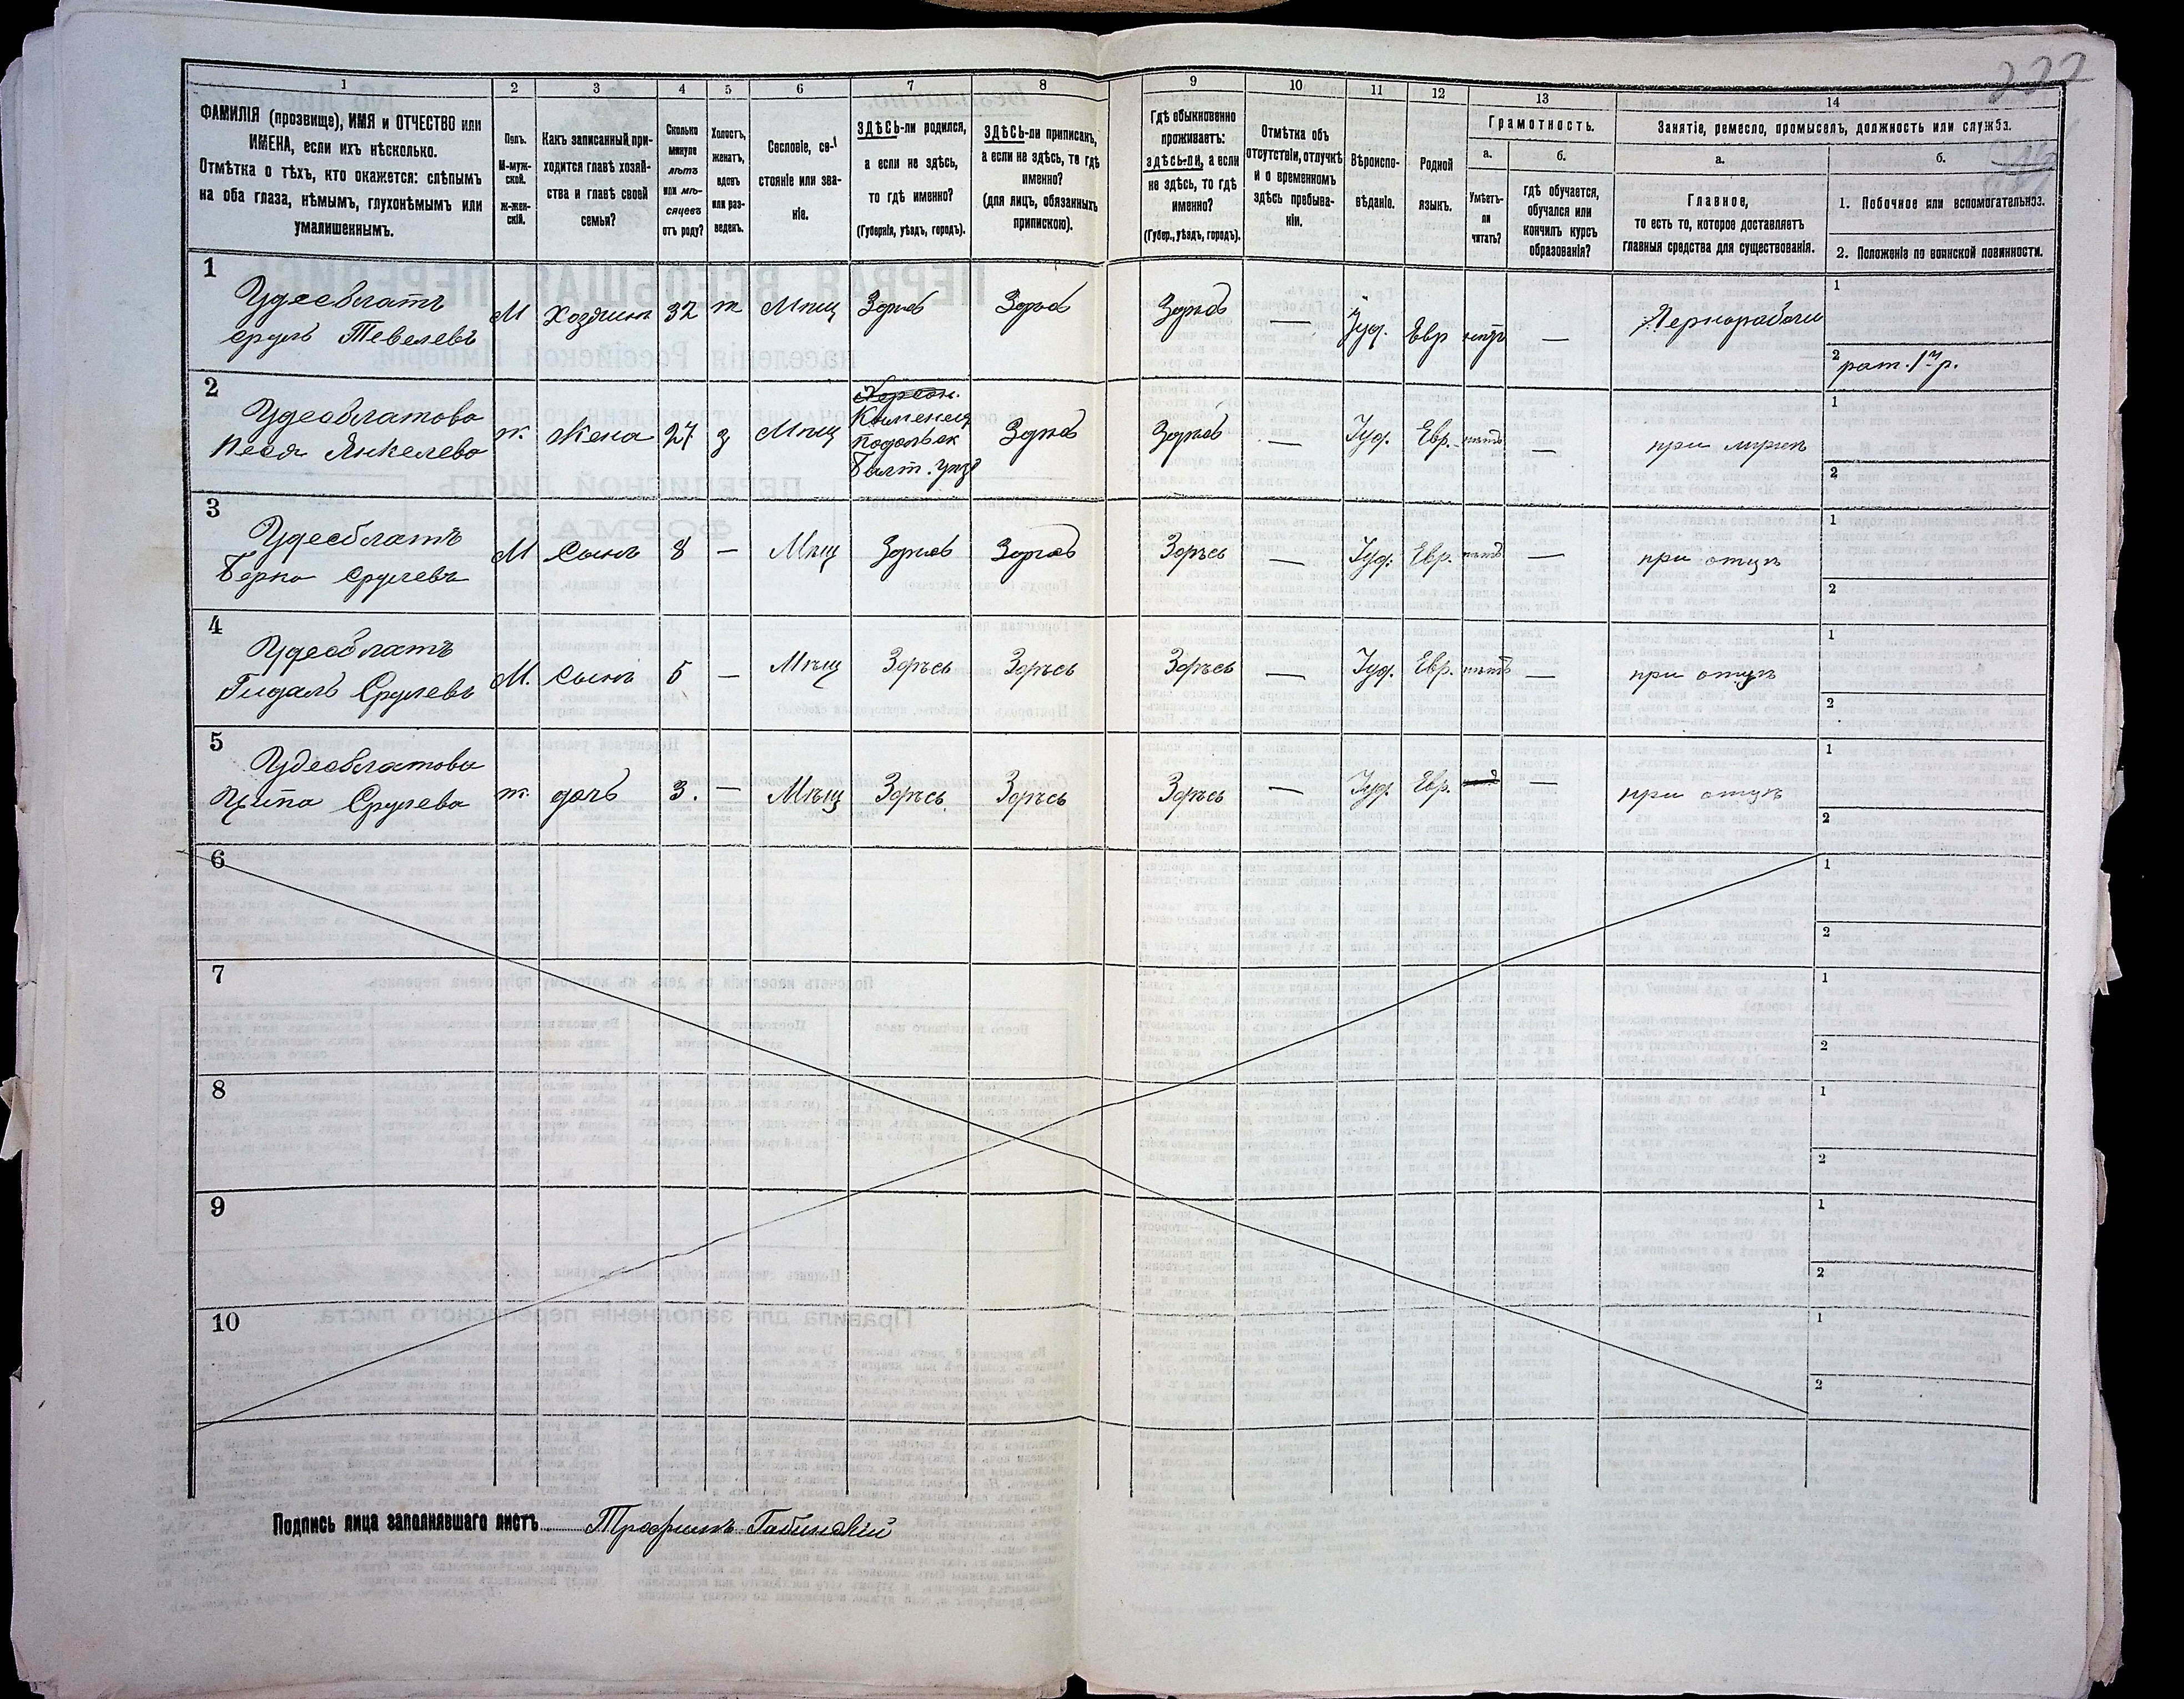 222
1 2 3 4 5 6 7 8 9 10 11 12 13 14
ФАМИЛІЯ (прозвище), ИМЯ и ОТЧЕСТВО или
ИМЕНА, если ихъ нѣсколько.
Отмѣтка о тѣхъ, кто окажется: слѣпымъ
на оба глаза, нѣмымъ, глухонѣмымъ или
умалишеннымъ.
Полъ.
М-муж-
ской.
ж-жен-
скій.
Какъ записанный при-
ходится главѣ хозяй-
ства и главѣ своей
семьи?
Сколько
минуло
лѣтъ
или мѣ-
сяцевъ
отъ роду?
Холостъ,
женатъ,
вдовъ
или раз-
веденъ.
Сословіе, со-
стояніе или зва-
ніе.
ЗДѢСЬ-ли родился,
а если не здѣсь,
то гдѣ именно?
(Губернія, уѣздъ, городъ).
ЗДѢСЬ-ли приписанъ,
а если не здѣсь, то гдѣ
именно?
(для лицъ, обязанныхъ
припискою).
Гдѣ обыкновенно
проживаетъ:
здѣсь-ли, а если
не здѣсь, то гдѣ
именно?
(Губер., уѣздъ, городъ).
Отмѣтка объ
отсутствіи, отлучкѣ
и о временномъ
здѣсь пребыва-
ніи.
Вѣроиспо-
вѣданіе.
Родной
языкъ.
Грамотность.
а.
Умѣетъ-
ли
читать?
б.
гдѣ обучается,
обучался или
кончилъ курсъ
образованія?
Занятіе, ремесло, промыселъ, должность или служба.
а.
Главное,
то есть то, которое доставляетъ
главныя средства для существованія.
б.
1. Побочное или вспомогательное.
2. Положеніе по воинской повинности.
1
Удесблатъ
Срулъ Тевелевъ
М Хозяинъ 32 ж Мѣщ Здѣсь Здѣсь Здѣсь — Іуд. Евр нѣтъ — Чернорабочи
1
2 рат. 1го р.
2
Удесблатова
Песя Янкелева
ж. жена 27 з Мѣщ
Херсон.
Каменец
Подольск
Балт. уѣзд
Здѣсь Здѣсь — Іуд. Евр. нѣтъ — при мужѣ
1
2
3
Удесблатъ
Берко Срулевъ
М Сынъ 8 — Мѣщ Здѣсь Здѣсь Здѣсь — Іуд. Евр. нѣтъ — при отцѣ
1
2
4
Удесблатъ
Гидаль Срулевъ
М. Сынъ 5 — Мѣщ Здѣсь Здѣсь Здѣсь — Іуд. Евр. нѣтъ — при отцѣ
1
2
5
Удесблатова
Ципа Срулева
ж. дочь 3. — Мѣщ Здѣсь Здѣсь Здѣсь — Іуд. Евр. — при отцѣ
1
2
6
1
2
7
1
2
8
1
2
9
1
2
10
1
2
Подпись лица заполнявшаго листъ Трофимъ Габинскій